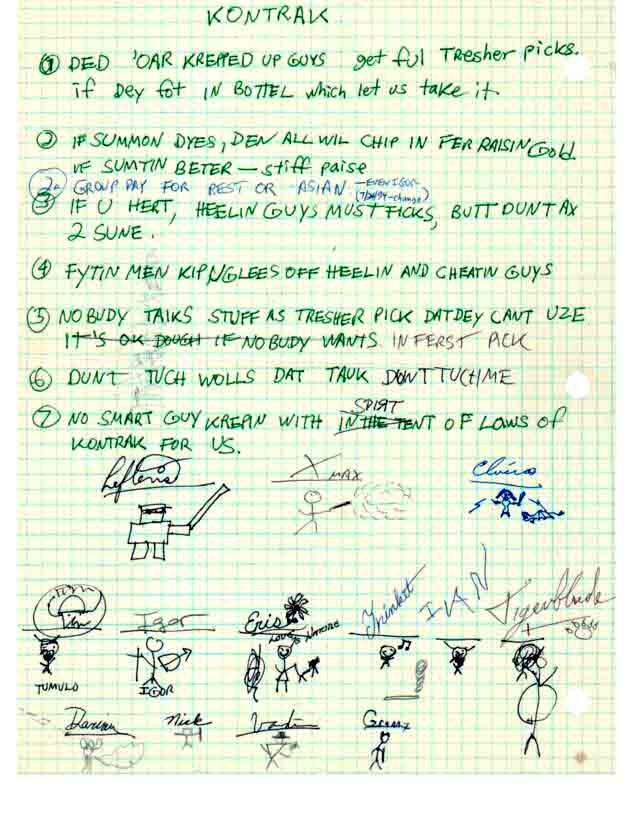 KONTRAK
① DED 'OAR KREPPED UP GUYS get ful Tresher picks.
if Dey fot IN BOTTEL which let us take it
② IF SUMMON DYES, DEN ALL WIL CHIP IN FER RAISIN Gold.
IF SUMTIN BETER — stiff paise
2a GROUP PAY FOR REST OR ASIAN — EVEN IGOR
(7/24/94 - change)
③ IF U HERT, HEELIN GUYS MUST FICKS, BUTT DUNT AX
2 SUNE.
④ FYTIN MEN KIP UGLEES OFF HEELIN AND CHEATIN GUYS
⑤ NOBUDY TAIKS STUFF AS TRESHER PICK DAT DEY CANT UZE
IT'S OK DOUGH IF NOBUDY WANTS. IN FERST PICK
⑥ DUNT TUCH WOLLS DAT TAUK DON'T TUCH ME
SPIRT
⑦ NO SMART GUY KREPIN WITH IN THE TENT OF LAWS OF
KONTRAK FOR US.
Lefteris X MAX Elvira
Tim Igor Eris Trinket IVAN Tigerblude
LOVES
TUMULO IGOR
Darien Nick